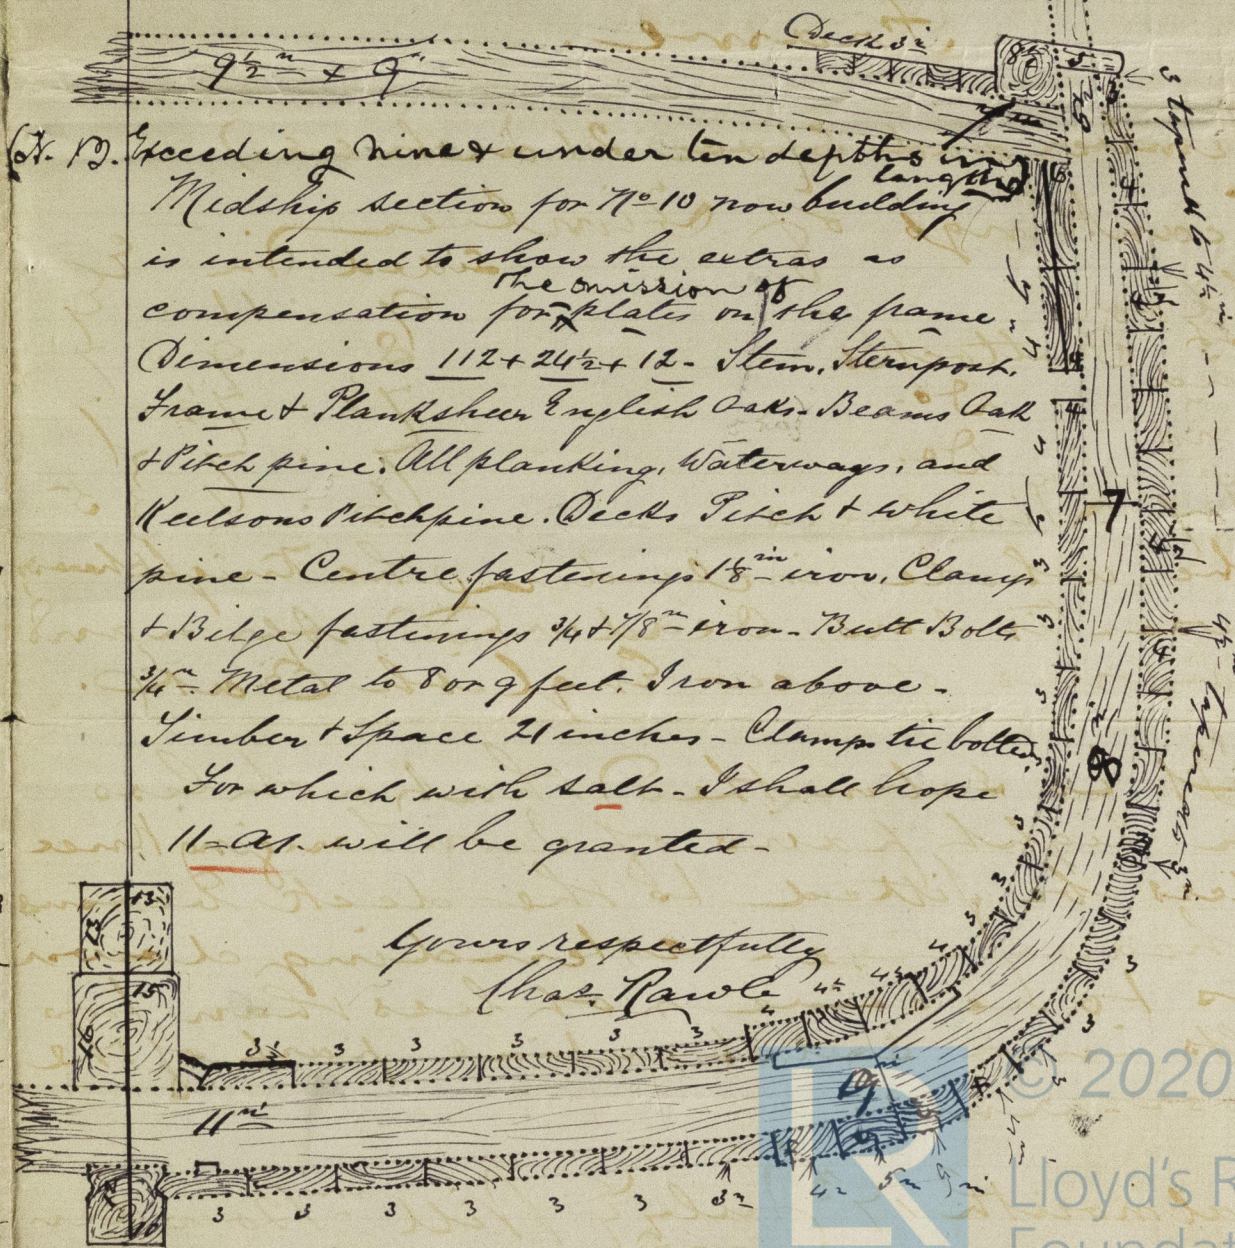 Deck 3 in
9½ in x 9"
N. B. Exceeding nine & under ten depths in
length
Midship section for No 10 now building
is intended to show the extras as
the omission of
compensation for plates on the frame.
Dimensions 112 + 24½ + 12 - Stem, Sternpost,
Frame & Planksheer English Oak - Beams Oak
& Pitch pine. All planking, Waterways, and
Keelsons Pitchpine. Decks Pitch & white
pine - Centre fastenings 1⅛ in iron, Clamp
& Bilge fastenings ¾ & 7/8 in iron - Butt Bolts
¾ in Metal to 8 or 9 feet. Iron above -
Timber & Space 21 inches - Clamps tie bolted
For which with salt - I shall hope
11 = A1. will be granted -
Yours respectfully
Chas. Rawle
7
8
13
13
15
3½ 3 3 3 3 3 4 4½ 4½ 4
11 in
9
3 3 3 3 3 3 3 in 4 in 5 in
© 2020
LR
Lloyd's R
Foundat